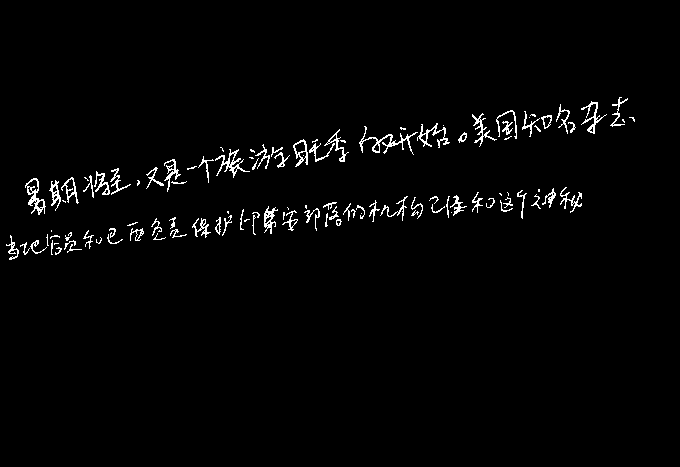 暑期将至，又是一个旅游旺季的开始。美国知名杂志
当地官员和巴西负责保护印第安部落的机构已经和这个神秘